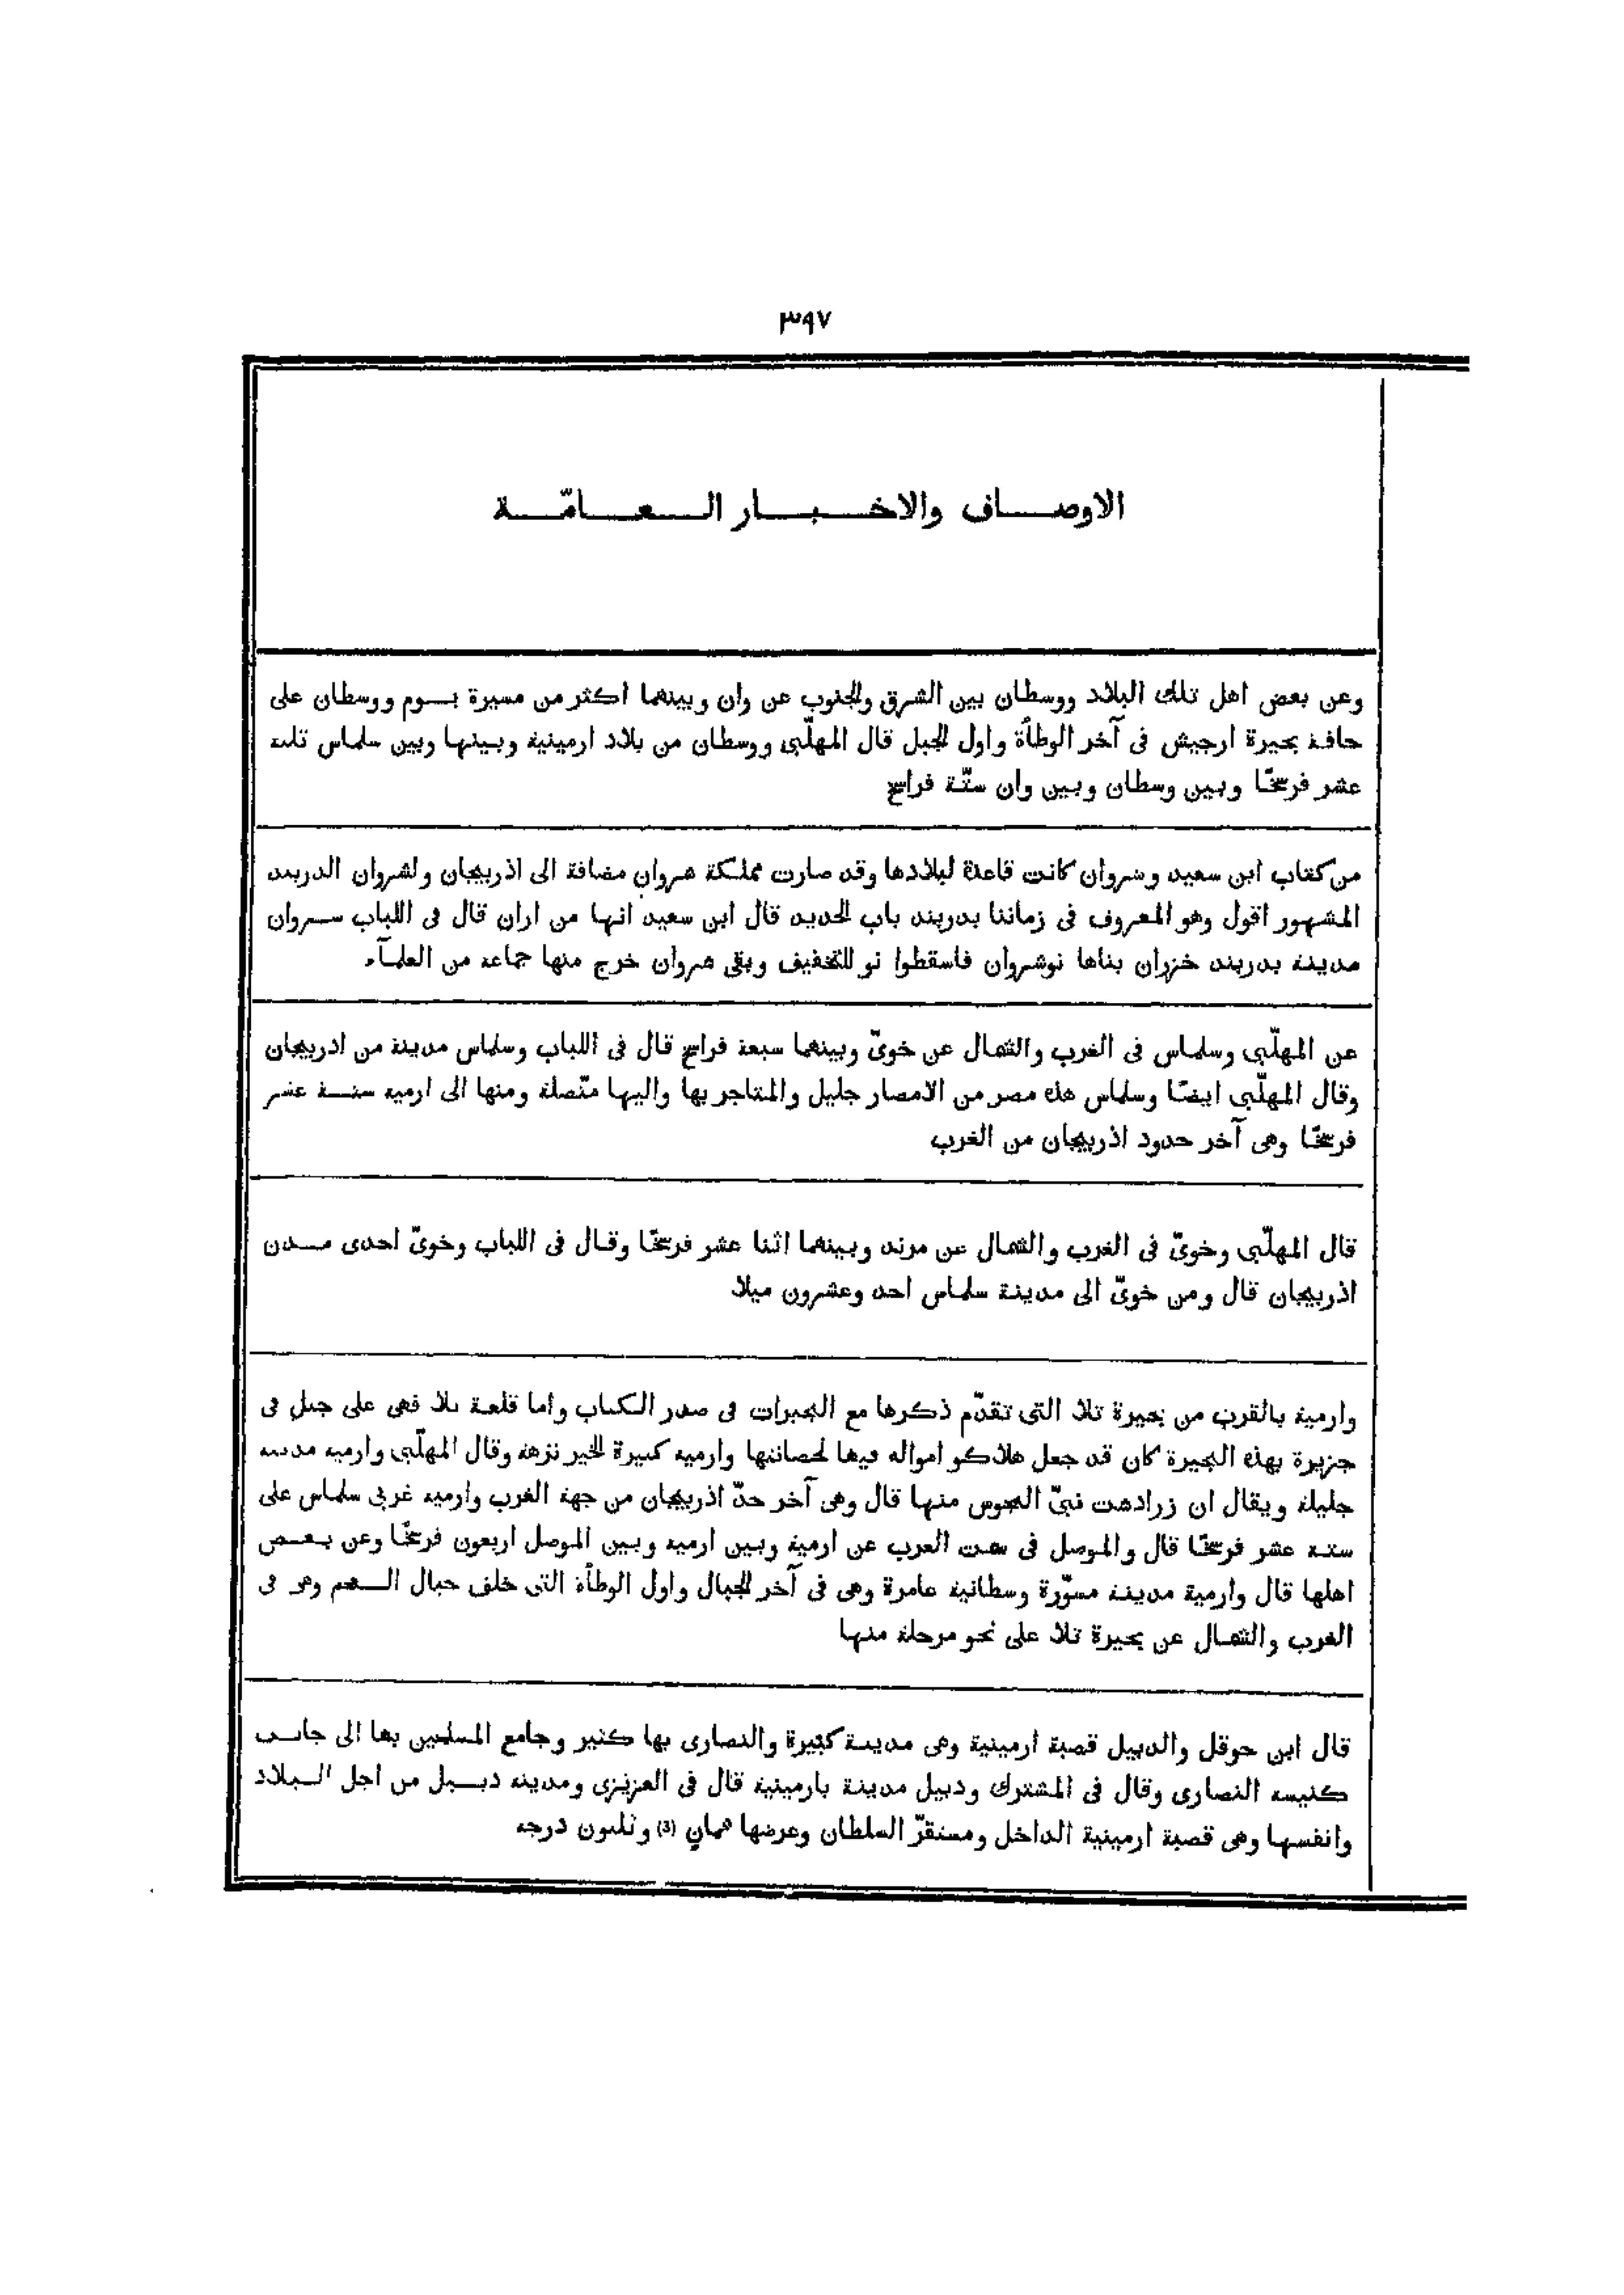 ٣٩٧
الاوصاف والاخبار العامّة
وعن بعض اهل تلك البلاد ووسطان بين الشرق والجنوب عن وان وبينهما اكثر من مسيرة يوم ووسطان على
حافة بحيرة ارجيش فى آخر الوطأة واول الجبل قال المهلّبى ووسطان من بلاد ارمينية وبينها وبين سلماس ثلثة
عشر فرسخًا وبين وسطان وبين وان ستّة فراسخ
من كتاب ابن سعيد وشروان كانت قاعدة لبلادها وقد صارت مملكة شروان مضافة الى اذربيجان ولشروان الدربند
المشهور اقول وهو المعروف فى زماننا بدربند باب الحديد قال ابن سعيد انها من اران قال فى اللباب شروان
مدينة بدربند خزران بناها نوشروان فاسقطوا نو للتخفيف وبقى شروان خرج منها جماعة من العلمآء
عن المهلّبى وسلماس فى الغرب والشمال عن خوىّ وبينهما سبعة فراسخ قال فى اللباب وسلماس مدينة من اذربيجان
وقال المهلّبى ايضًا وسلماس هذه مصر من الامصار جليل والمتاجر بها واليها متّصلة ومنها الى ارمية ستة عشر
فرسخًا وهى آخر حدود اذربيجان من الغرب
قال المهلّبى وخوىّ فى الغرب والشمال عن مرند وبينهما اثنا عشر فرسخًا وقال فى اللباب وخوىّ احدى مدن
اذربيجان قال ومن خوىّ الى مدينة سلماس احد وعشرون ميلا
وارمية بالقرب من بحيرة تلا التى تقدّم ذكرها مع البحيرات فى صدر الكتاب واما قلعة تلا فهى على جبل فى
جزيرة بهذه البحيرة كان قد جعل هلاكو امواله فيها لحصانتها وارمية كبيرة الخير نزهة وقال المهلّبى وارمية مدينة
جليلة ويقال ان زرادشت نبىّ المجوس منها قال وهى آخر حدّ اذربيجان من جهة الغرب وارمية غربى سلماس على
ستة عشر فرسخًا قال والموصل فى سمت الغرب عن ارمية وبين ارمية وبين الموصل اربعون فرسخًا وعن بعض
اهلها قال وارمية مدينة مسوّرة وسطانية عامرة وهى فى آخر الجبال واول الوطأة التى خلف جبال العجم وهى فى
الغرب والشمال عن بحيرة تلا على نحو مرحلة منها
قال ابن حوقل والدبيل قصبة ارمينية وهى مدينة كبيرة والنصارى بها كثير وجامع المسلمين بها الى جانب
كنيسة النصارى وقال فى المشترك ودبيل مدينة بارمينية قال فى العزيزى ومدينة دبيل من اجل البلاد
وانفسها وهى قصبة ارمينية الداخل ومستقرّ السلطان وعرضها ثمان (3) وثلثون درجة